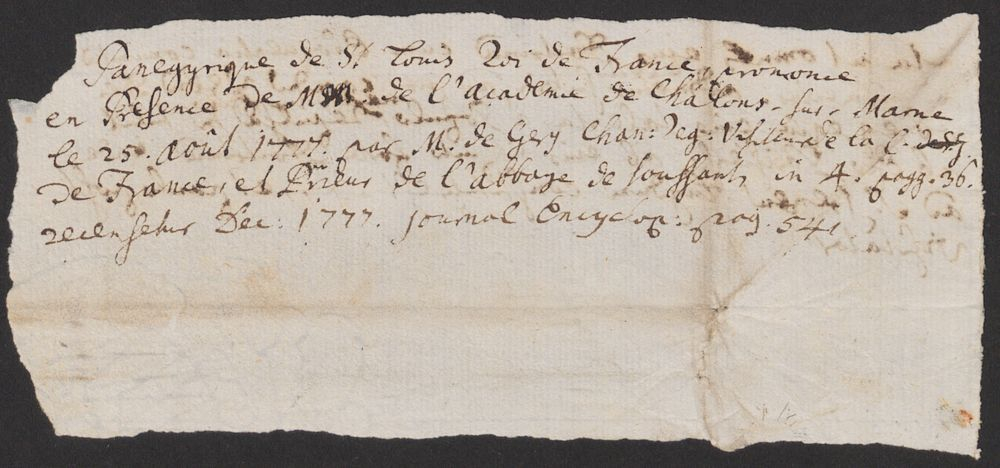 Panegyrique de St Louis Roi de France, prononcé
en Présence de MM de l'académie de Châlons-sur-Marne
le 25. août 1777. par M. de Gery Chan: reg: Visiteur de la C. de
de France, et Prieur de l'abbaye de toussaints in 4. pagg. 36.
recensetur Dec: 1777. journal Encyclop: pag. 541